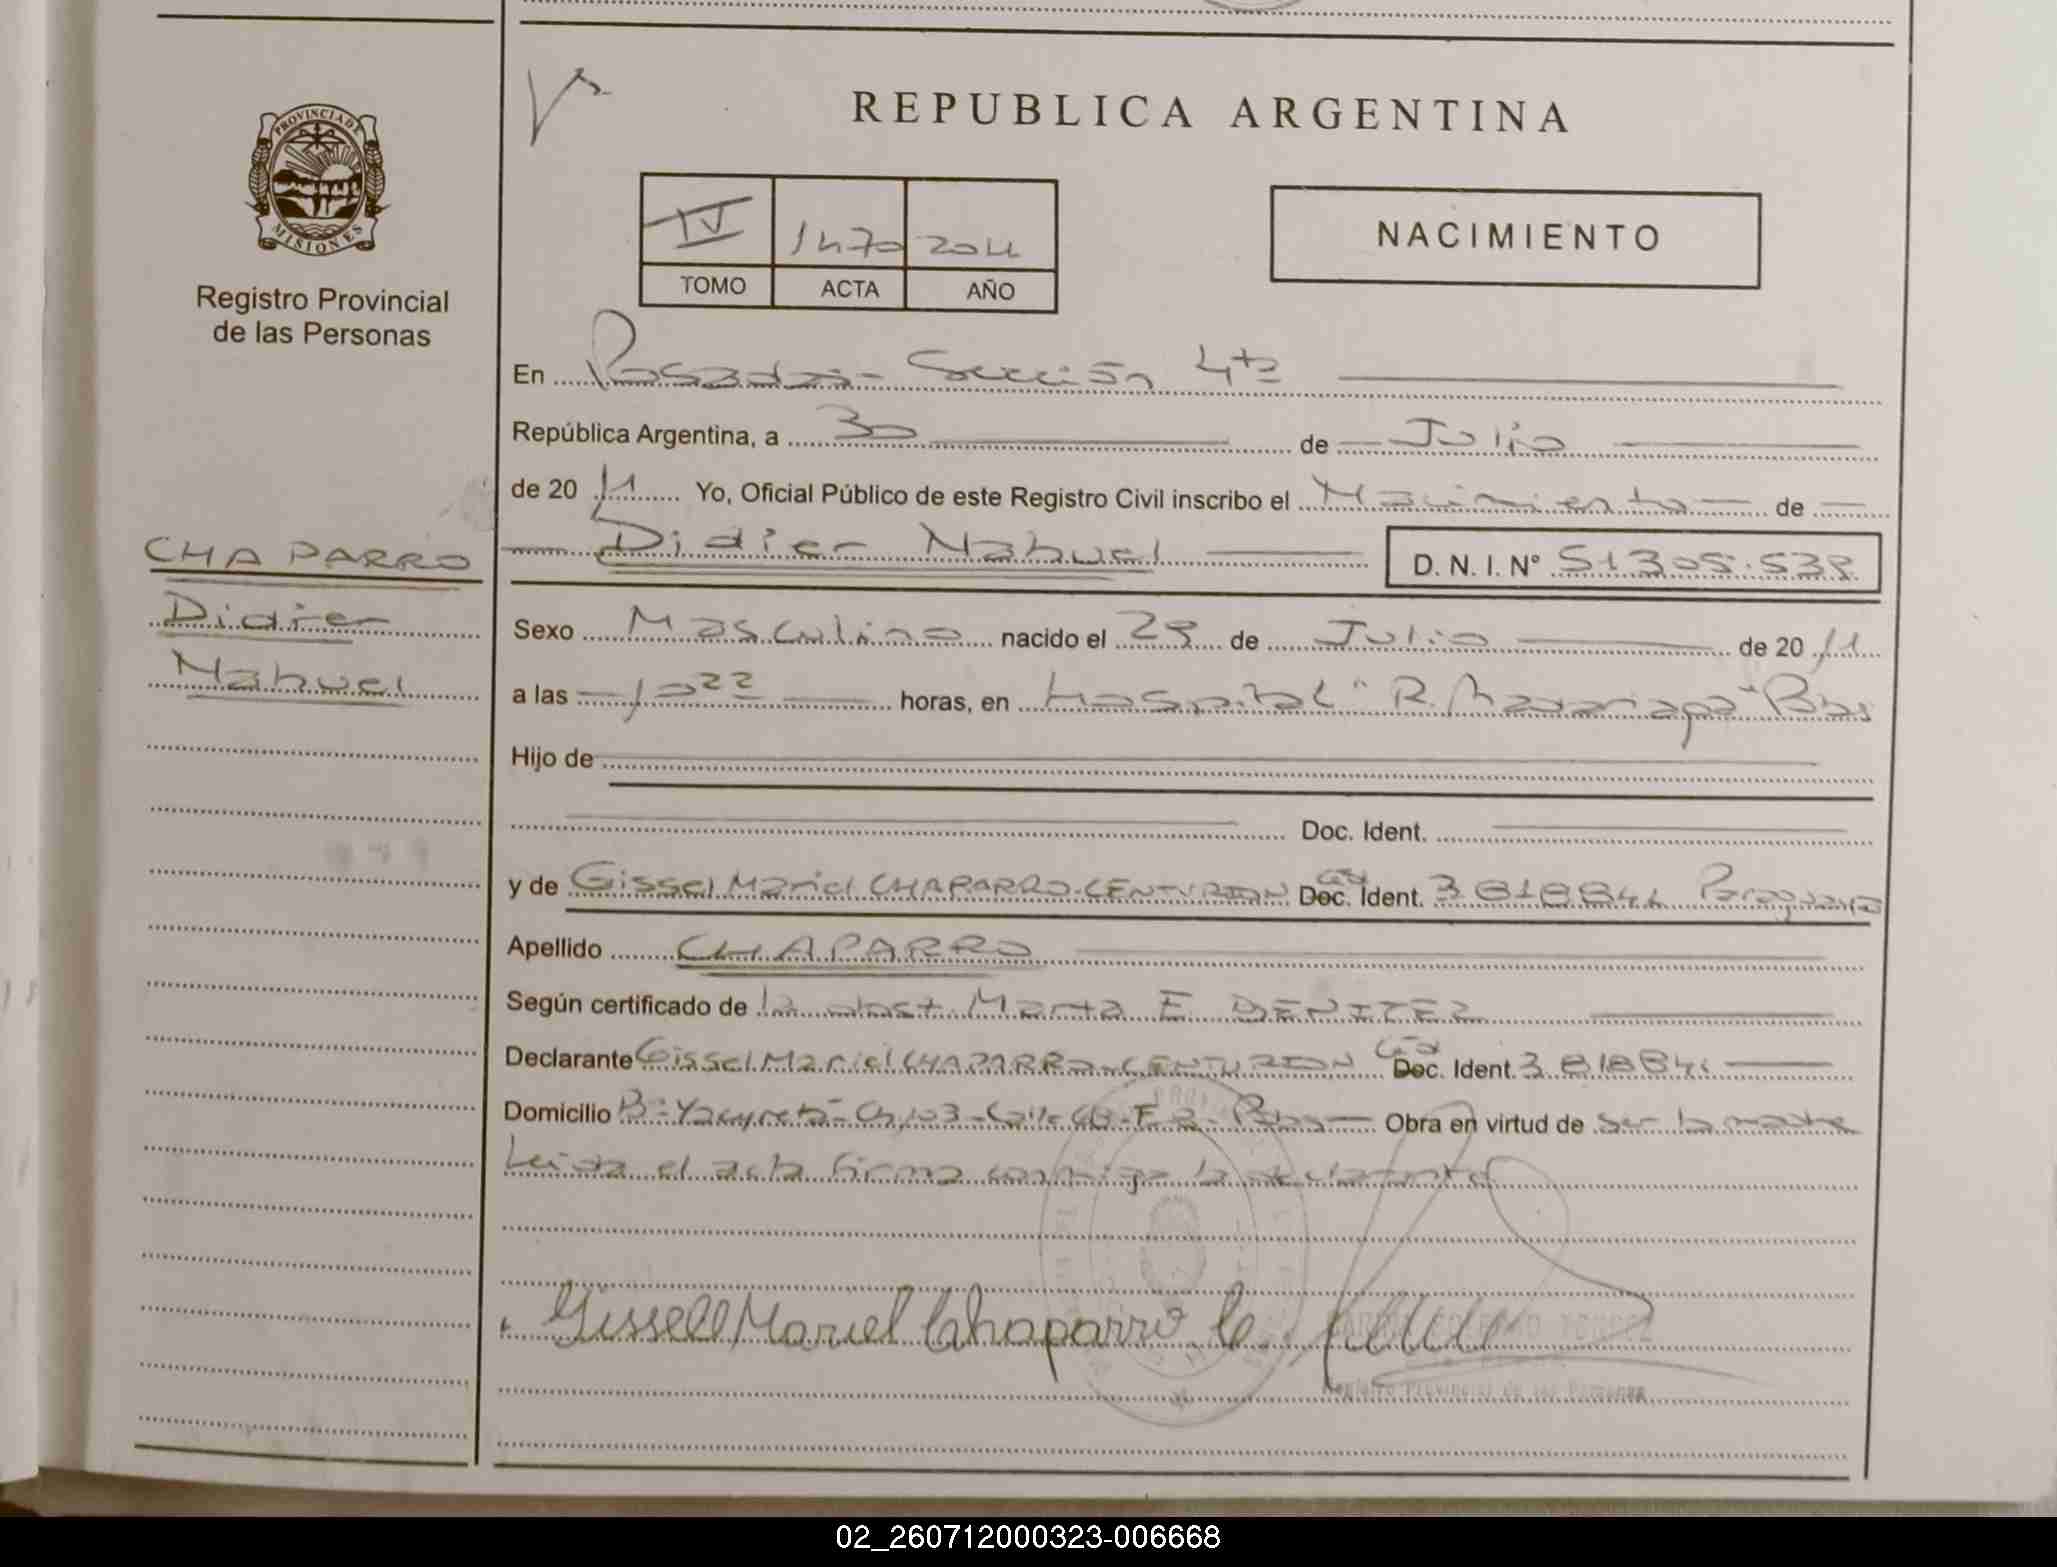 REPUBLICA ARGENTINA
PROVINCIA DE
MISIONES
Registro Provincial
de las Personas
IV 1470 2011
TOMO ACTA AÑO
NACIMIENTO
En Posadas - Sección 4ta
República Argentina, a 30 de Julio
de 20 11 Yo, Oficial Público de este Registro Civil inscribo el Nacimiento de
Didier Nahuel D. N. I. Nº 51305.538
CHAPARRO
Didier
Nahuel
Sexo Masculino nacido el 29 de Julio de 20 11
a las 10 22 horas, en Hospital "R. Madariaga" Pdas
Hijo de
Doc. Ident.
y de Gissel Mariel CHAPARRO-CENTURION Doc. Ident. 3818841 Paraguaya
Apellido CHAPARRO
Según certificado de la obst. Marta E. BENITEZ
Declarante Gissel Mariel CHAPARRO-CENTURION Doc. Ident. 3818841
Domicilio Bº Yacyretá - Ch,103 - Calle Pdas Obra en virtud de ser la madre
Leida el acta firma conmigo la declarante
Gissell Mariel Chaparro C.
Registro Provincial de las Personas
02_260712000323-006668